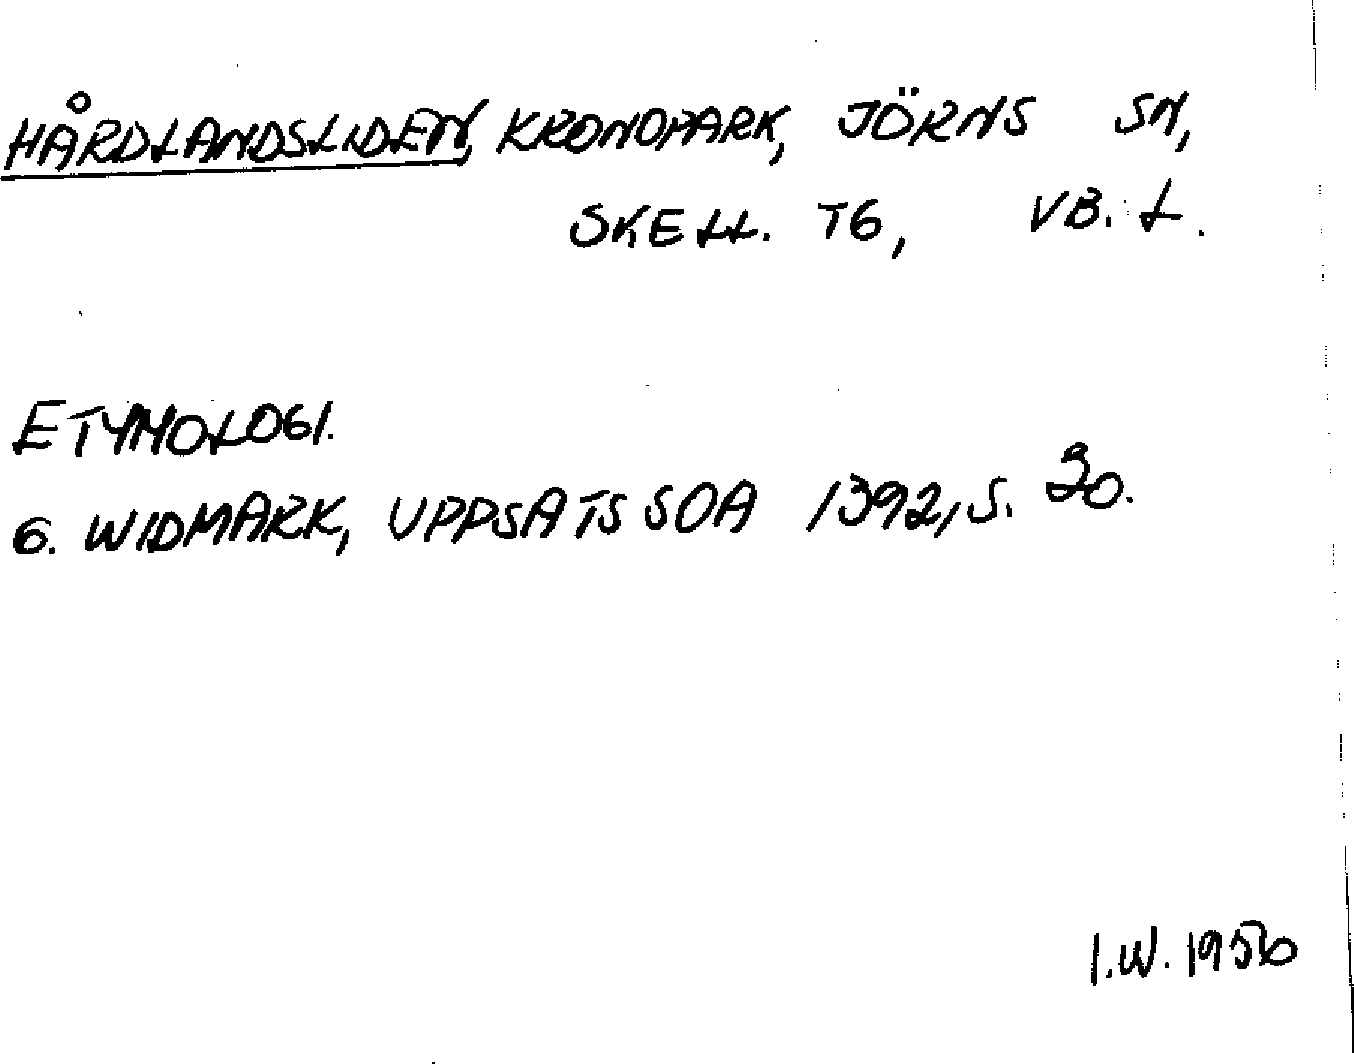 HÅRDLANDSLIDEN, KRONOPARK, JÖRNS SN,
SKELL. TG, VB. L.
ETYMOLOGI.
G. WIDMARK, UPPSATS SOA 1392, S. 30.
I.W. 1956